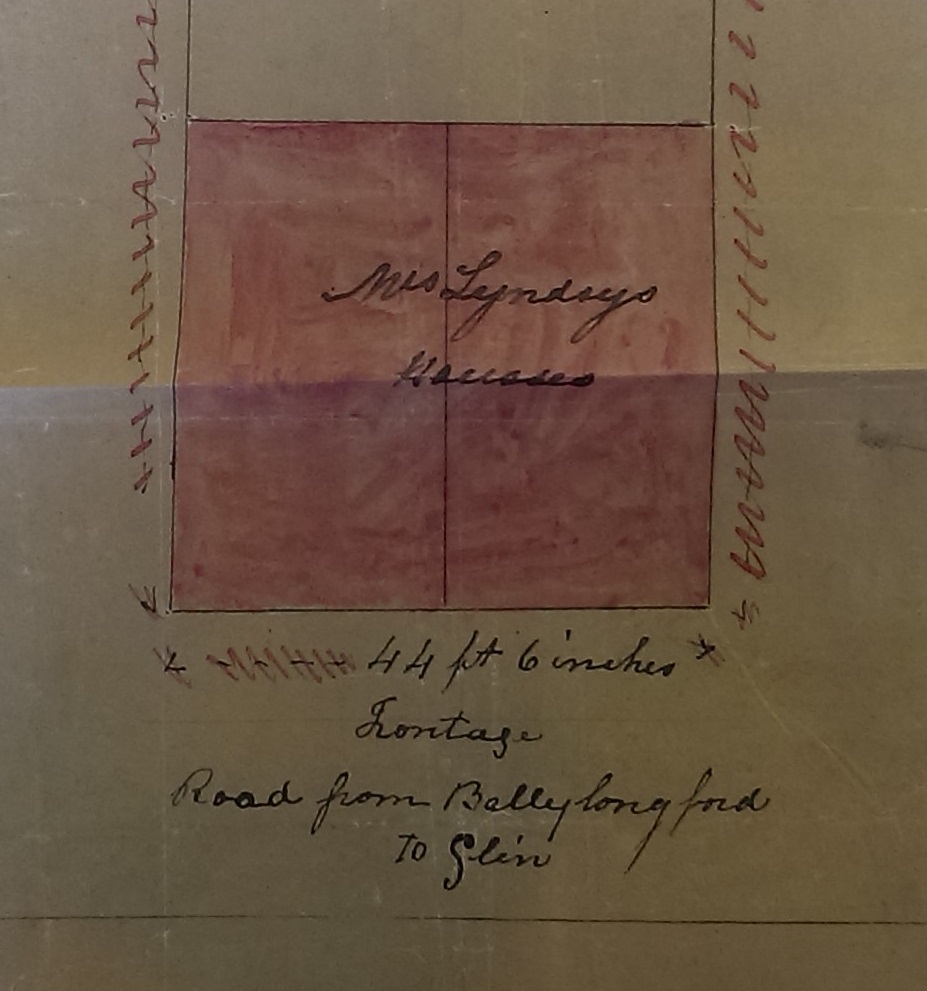 Mrs Lyndsys
Houses
44 ft 6 inches
Frontage
Road from Ballylongford
to Glin